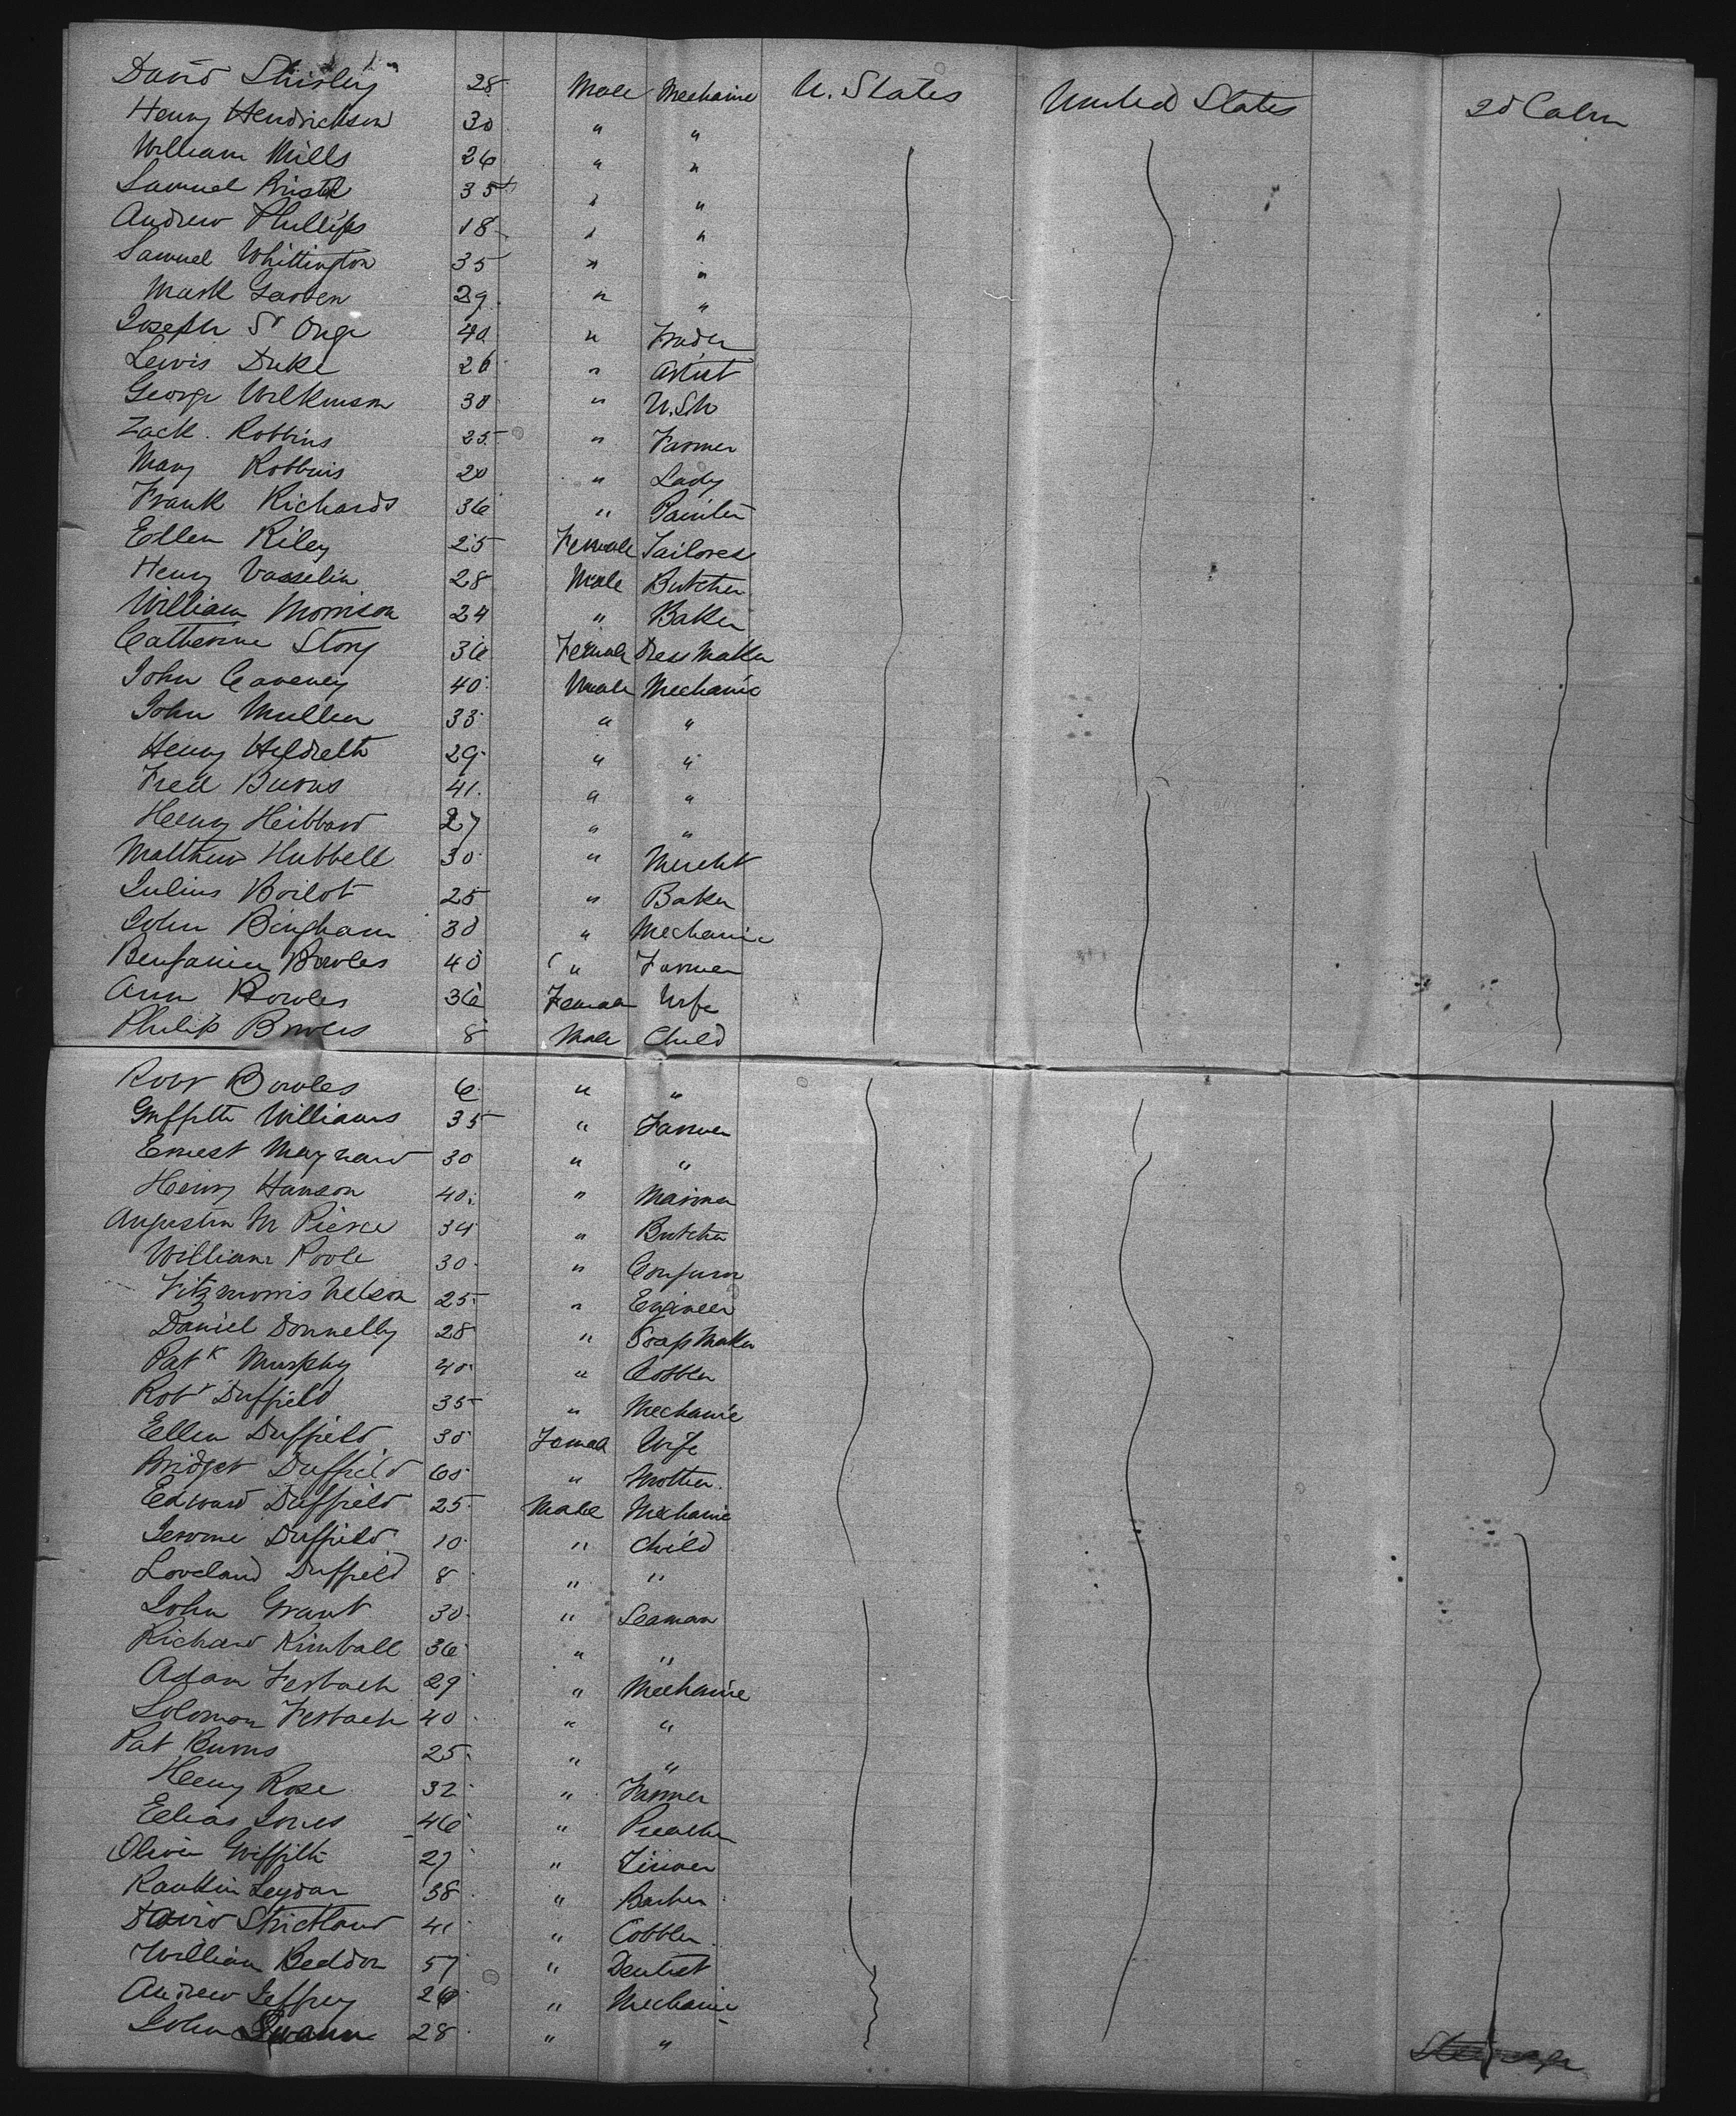 David Shirley 28 Male Mechanic U. States United States 2d Cabin
Henry Hendrickson 30 " "
William Mills 26 " "
Samuel 35 " "
Andrew Phillips 18 " "
Samuel Whittington 35 " "
Mark Garden 29 " "
Joseph St Onge 40 " Trader
Lewis Duke 26 " Artist
George Wilkinson 30 " U.S.N
Zack. Robbins 25 " Farmer
Mary Robbins 20 " Lady
Frank Richards 36 " Painter
Ellen Riley 25 Female Tailoress
Henry Vasselin 28 Male Butcher
William Morrison 24 " Baker
Catherine Story 36 Female Dress Maker
John Caveney 40 Male Mechanic
John Mullen 33 " "
Henry Hildreth 29 " "
Fred Burns 41 " "
Henry Hibbard 27 " "
Matthew Hubbell 30 " Mercht
Julius Boilot 25 " Baker
John Bingham 30 " Mechanic
Benjamin Bowles 40 " Farmer
Ann Bowles 36 Female Wife
Philip Bowles 8 Male Child
Robt Bowles 6 " "
Griffith Williams 35 " Farmer
Ernest Maynard 30 " "
Henry Hanson 40 " Mariner
Augustin M Pierce 34 " Butcher
William Poole 30 "
Fitzmorris Nelson 25 " Engineer
Daniel Donnelly 28 " Soap Maker
Patk Murphy 40 " Cobbler
Robt Duffield 35 " Mechanic
Ellen Duffield 30 Female Wife
Bridget Duffield 60 " Mother
Edward Duffield 25 Male Mechanic
Jerome Duffield 10 " Child
Loveland Duffield 8 " "
John Grant 30 " Seaman
Richard Kimball 36 " "
Adam Ferbach 29 " Mechanic
Solomon Ferbach 40 " "
Pat Burns 25 " "
Henry Rose 32 " Farmer
Elias Jones 46 " Preacher
Oliver Griffith 27 "
Rankin Leydan 38 " Barber
David Strickland 41 " Cobbler
William Beddon 57 " Dentist
Andrew Jeffrey 26 " Mechanic
John Swann 28 " "
Steerage